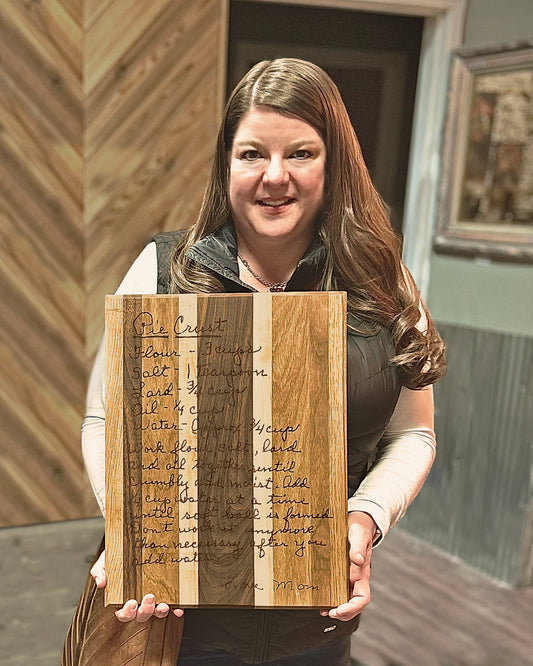 Pie Crust
Flour - 3 cups
Salt - 1 teaspoon
Lard - 3/4 cups
Oil - 1/4 cup
Water - Approx 3/4 cup
Work flour, salt, lard
and oil together until
crumbly and moist. Add
1/4 cup water at a time
until soft ball is formed.
Don't work it anymore
than necessary after you
add water.
Love Mom